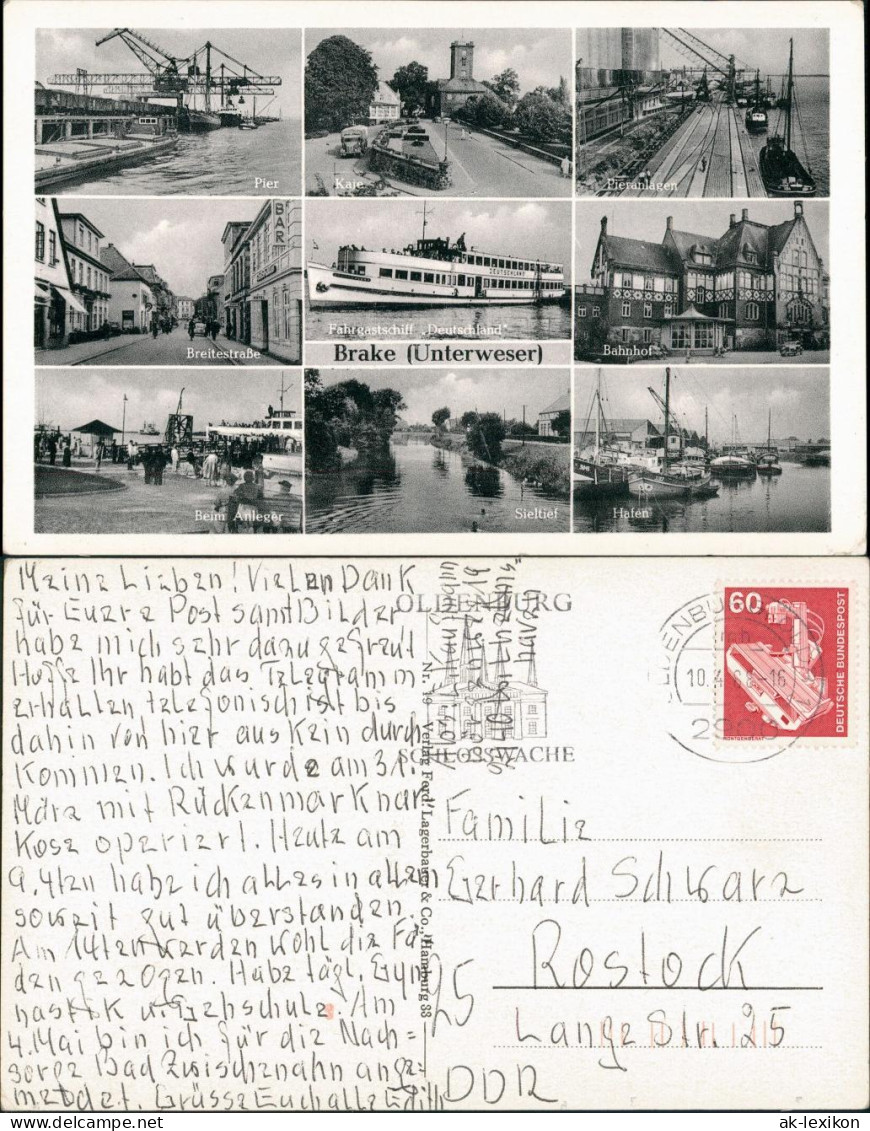 Pier
Kaje
Pieranlagen
BAR
Breitestraße
DEUTSCHLAND
Fahrgastschiff „Deutschland"
Brake (Unterweser)
Bahnhof
Beim Anleger
Sieltief
Hafen
Meine Lieben! Vielen Dank
für Euere Post samt Bilder
habe mich sehr dazu gefreut
Hoffe Ihr habt das Telegramm
erhallen telefonisch ist bis
dahin von hier aus Kein durch
Kommen. Ich wurde am 31.
März mit Rückenmark Nar
Kose operiert. Heute am
9.4ten habe ich alles in allem
soweit gut überstanden.
Am 14ten werden wohl die Fä
den gezogen. Habe tägl. Gym
nastik u. Gehschule. Am
4. Mai bin ich für die Nach=
sorge Bad Zwischenahn ange=
meldet. Grüsse Euch alle Edith
OLDENBURG
SCHLOSSWACHE
Nr. 19 Verlag Ferd. Lagerbauer & Co., Hamburg 33
OLDENBURG
10.4. -16
60
DEUTSCHE BUNDESPOST
Familie
Gerhard Schwarz
25 Rostock
Lange Str. 25
DDR
ak-lexikon.de